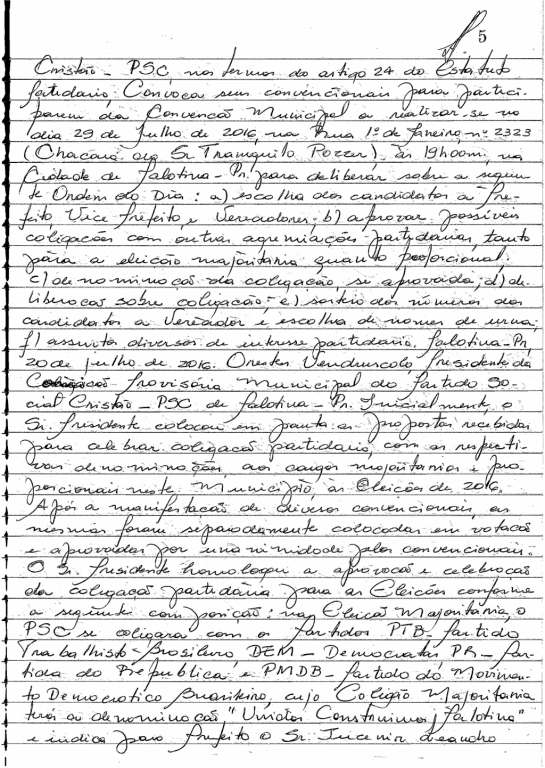 5
Cristão - PSC, nos termos do artigo 24 do Estatuto
partidario, Convoca seus convencionais para partici-
parem da Convencão Municipal a realizar-se no
dia 29 de Julho de 2016, na Rua 1º de Janeiro, nº 2323
(Chacara do Sr Tranquilo Pozzer), às 19h00m, na
Cidade de Palotina - Pr, para deliberar sobre a seguin-
te Ordem do Dia: a) escolha dos candidatos a Pre-
feito, Vice Prefeito, e Vereadores; b) aprovar possíveis
coligações com outras agremiações partidárias, tanto
para a eleição majoritaria quanto proporcional;
c) denominação da coligação, se aprovada; d) de-
liberação sobre coligação; e) sorteio dos números dos
candidatos a Vereador e escolha de nomes de urna;
f) assuntos diversos de interesse partidario. Palotina-Pr,
20 de julho de 2016. Orestes Vendruscolo Presidente da
Provisória Municipal do Partido So-
cial Cristão - PSC de Palotina - Pr. Inicialmente, o
Sr. Presidente colocou em pauta as propostas recebidas
para celebrar coligação partidaria, com as respecti-
vas denominações, aos cargos majoritarios e pro-
porcionais neste Municipio, às Eleições de 2016.
Após a manifestação de diversos convencionais, as
mesmas foram separadamente colocadas em votacão
e aprovadas por unanimidade pelos convencionais.
O Sr. Presidente homologou a aprovação e celebração
da coligação partidária para as Eleições conforme
a seguinte composição: na Eleição Majoritária, o
PSC se coligara com os Partidos PTB - Partido
Trabalhista Brasileiro DEM - Democratas PR - Par-
tido da Republica e PMDB - Partido do Movimen-
to Democrático Brasileiro, cujo Coligão Majoritaria
terá a denominação "Unidos Construimos Palotina"
e indica para Prefeito o Sr. Jucenir Leandro